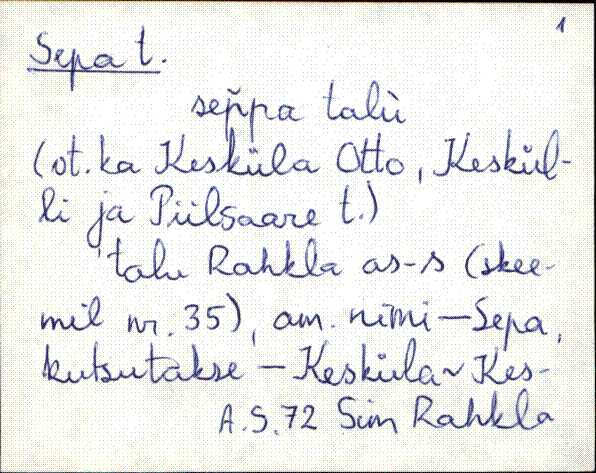 1
Sepa t.
sep̆pa talù
(ot. ka Kesküla Otto, Keskül-
li ja Piilsaare t.)
talu Rahkla as-s (skee-
mil nr. 35), am. nimi – Sepa,
kutsutakse – Kesküla ~ Kes-
A.S. 72 Sim Rahkla